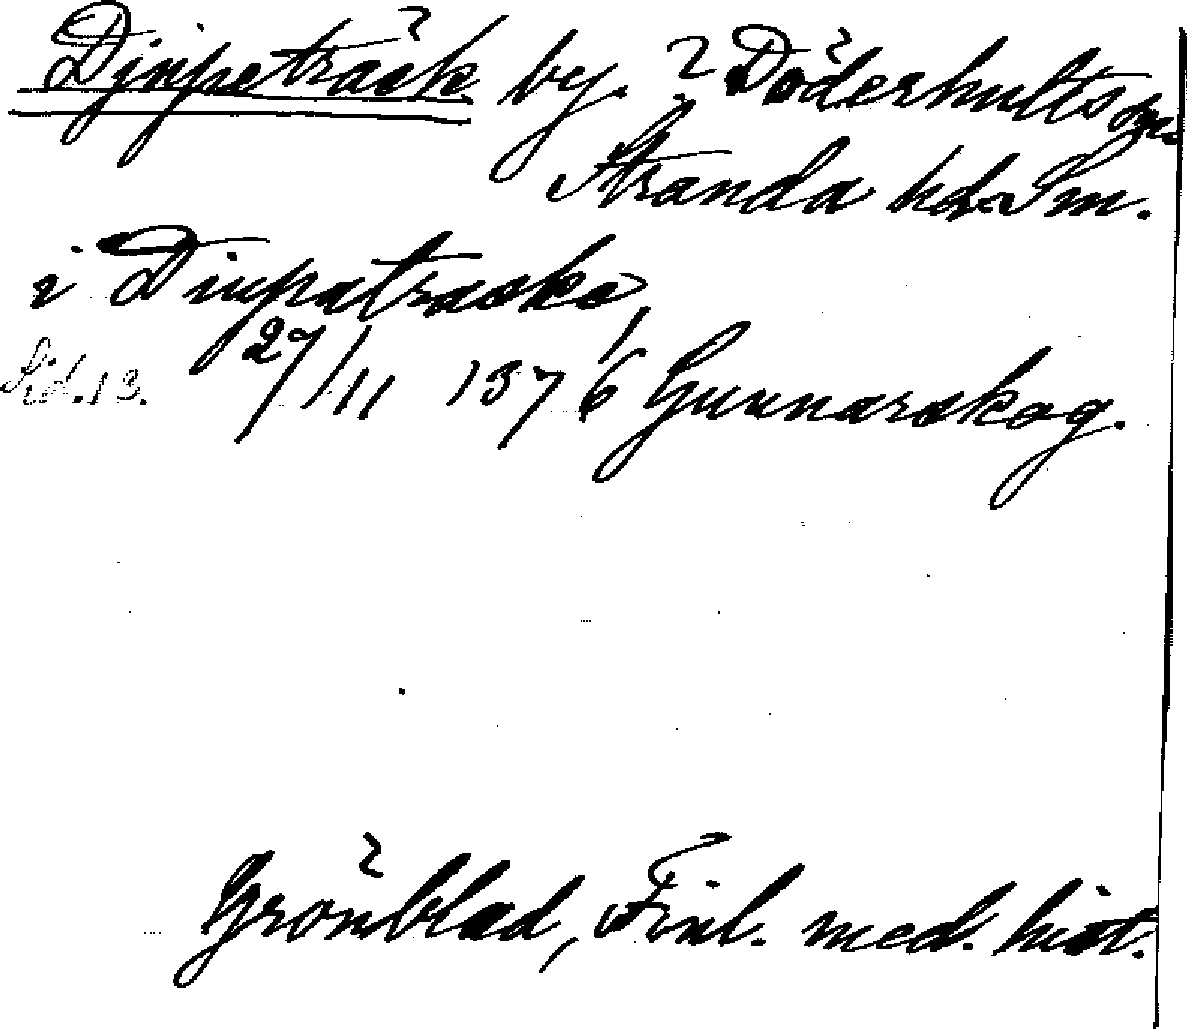 Djupeträsk by. ? Döderhults sn.
Stranda hd. Sm.
i Diupatræske,
Sid. 13. 27/11 1376 Gunnarskog.
Grönblad, Finl. med. hist.